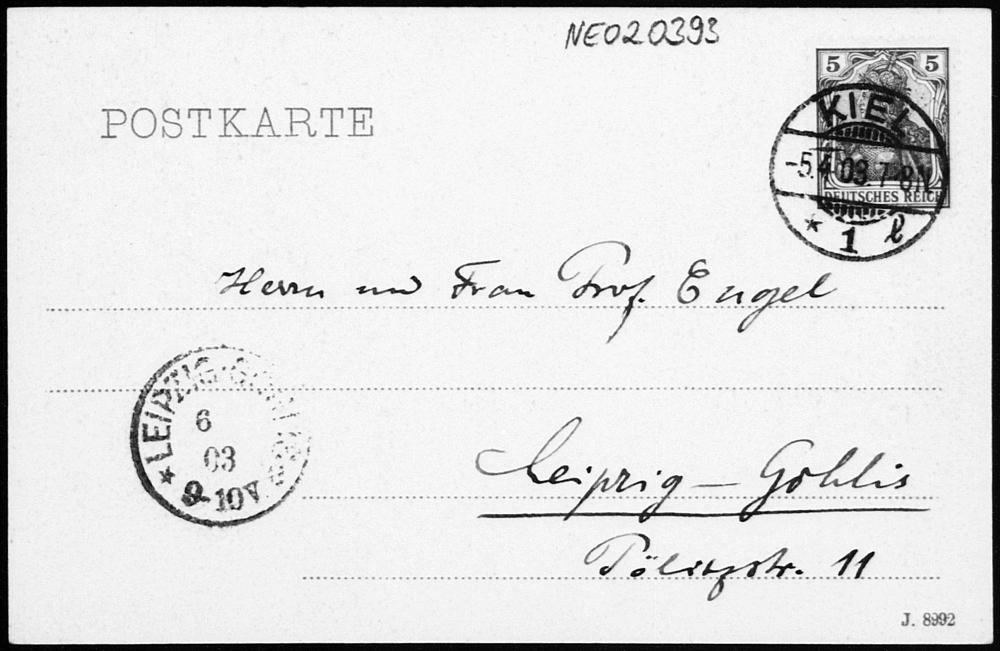 NE020393
POSTKARTE
5 5
DEUTSCHES REICH
KIEL
-5.4.03.7-8N
* 1 l
Herrn und Frau Prof. Engel
* LEIPZIG-GOHLIS
6
03
9-10V
Leipzig – Gohlis
Pölitzstr. 11
J. 8992